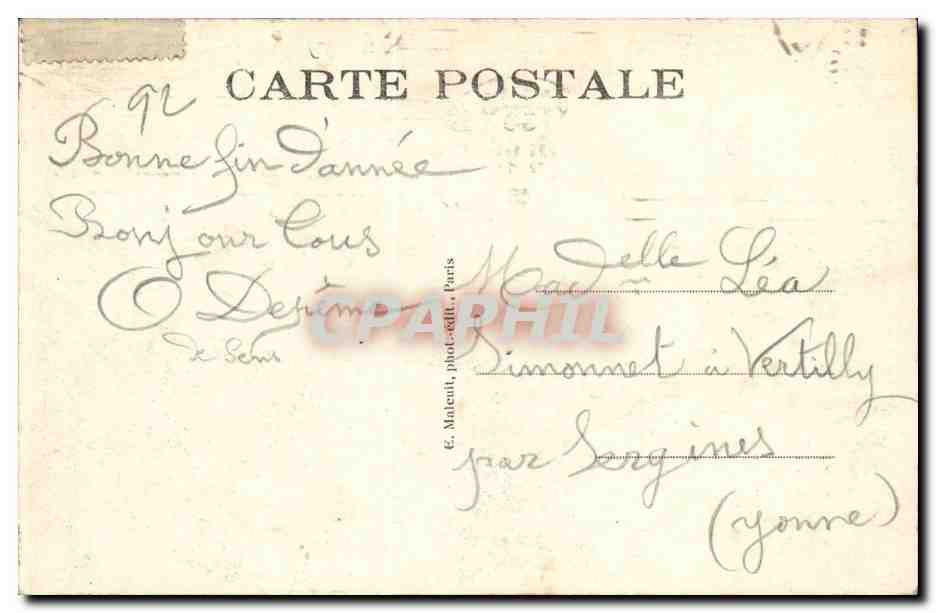 CARTE POSTALE
92
Bonne fin d'année
Bonjour tous
de Sens
CPAPHIL
E. Malcuit, phot.-édit., Paris
Madelle Léa
Simonnet à Vertilly
par Sergines
(Yonne)